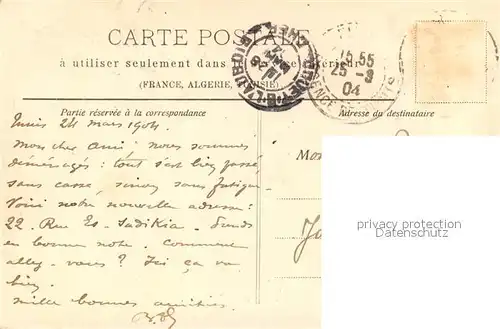 CARTE POSTALE
à utiliser seulement dans le service intérieur
(FRANCE, ALGERIE, TUNISIE)
15.55
25-3
04
Partie réservée à la correspondance
Adresse du destinataire
Tunis 24 mars 1904
Mon cher ami nous sommes
déménagés : tout s'est bien passé,
sans casse, sinon sans fatigue.
Voici notre nouvelle adresse :
22. Rue Es-Sadikia. Prends
en bonne note. Comment
allez-vous ? Ici ça va
bien
mille bonnes amitiés
Mon
privacy protection
Datenschutz